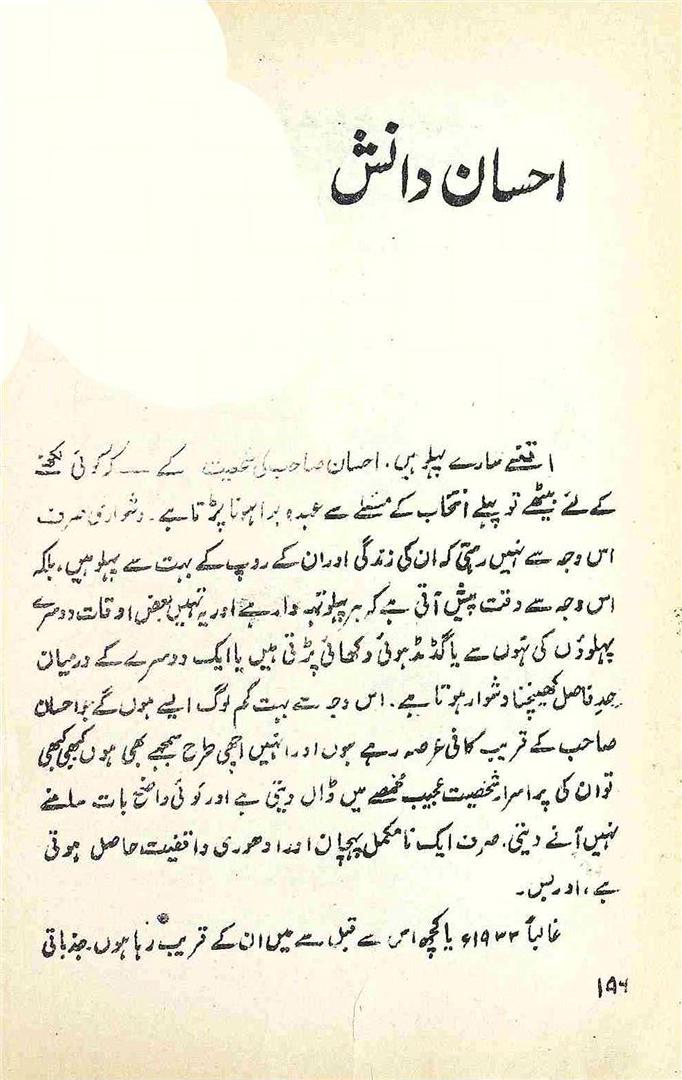 احسان دانش
اتنے سارے پہلو ہیں، احسان صاحب کی شخصیت کے — کہ کوئی لکھنے
کے لئے بیٹھے تو پہلے انتخاب کے مسئلے سے عہدہ برا ہونا پڑتا ہے۔ دشواری صرف
اس وجہ سے نہیں رہتی کہ ان کی زندگی اور ان کے روپ کے بہت سے پہلو ہیں، بلکہ
اس وجہ سے دقت پیش آتی ہے کہ ہر پہلو تہہ دار ہے اور یہ تہیں بعض اوقات دوسرے
پہلوؤں کی تہوں سے یا گڈمڈ ہوئی دکھائی پڑتی ہیں یا ایک دوسرے کے درمیان
حدِ فاصل کھینچنا دشوار ہوتا ہے۔ اس وجہ سے بہت کم لوگ ایسے ہوں گے جو احسان
صاحب کے قریب کافی عرصہ رہے ہوں اور انہیں اچھی طرح سمجھے بھی ہوں کبھی کبھی
تو ان کی پراسرار شخصیت عجیب مخمصے میں ڈال دیتی ہے اور کوئی واضح بات سامنے
نہیں آنے دیتی، صرف ایک نامکمل پہچان اور ادھوری واقفیت حاصل ہوتی
ہے، اور بس۔
غالباً ۱۹۳۳ء یا کچھ اس سے قبل سے میں ان کے قریب رہا ہوں۔ جذباتی
۱۵۶